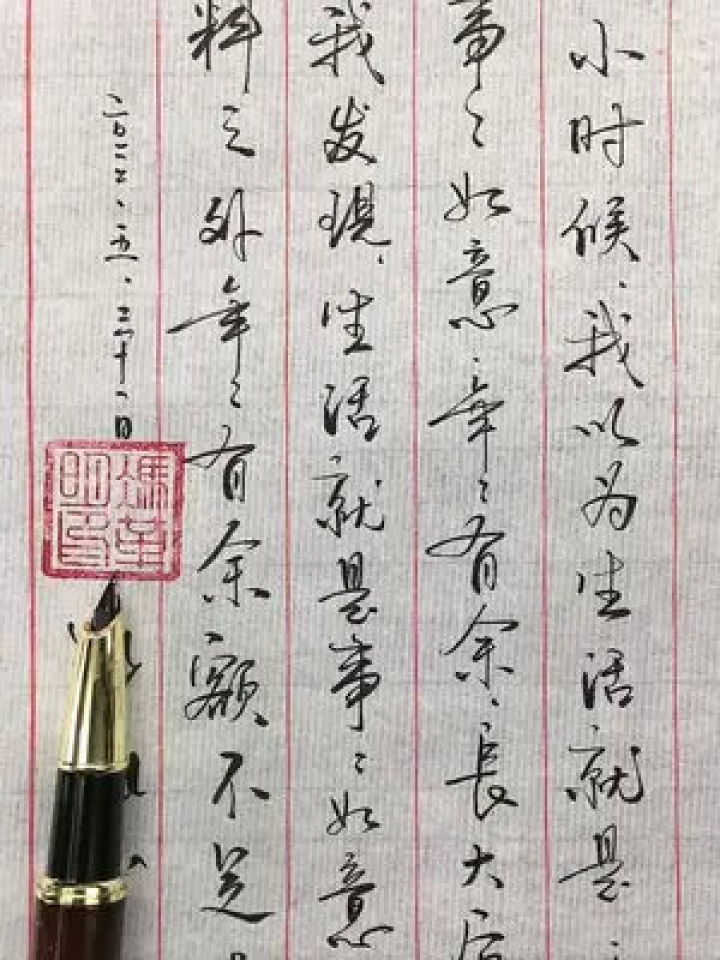 小时候，我以为生活就是：
事〻如意，年〻有余，長大后
我发现，生活就是事〻如意
料之外，年〻有余额不足。
二〇二二·五·三十一日
馮明印